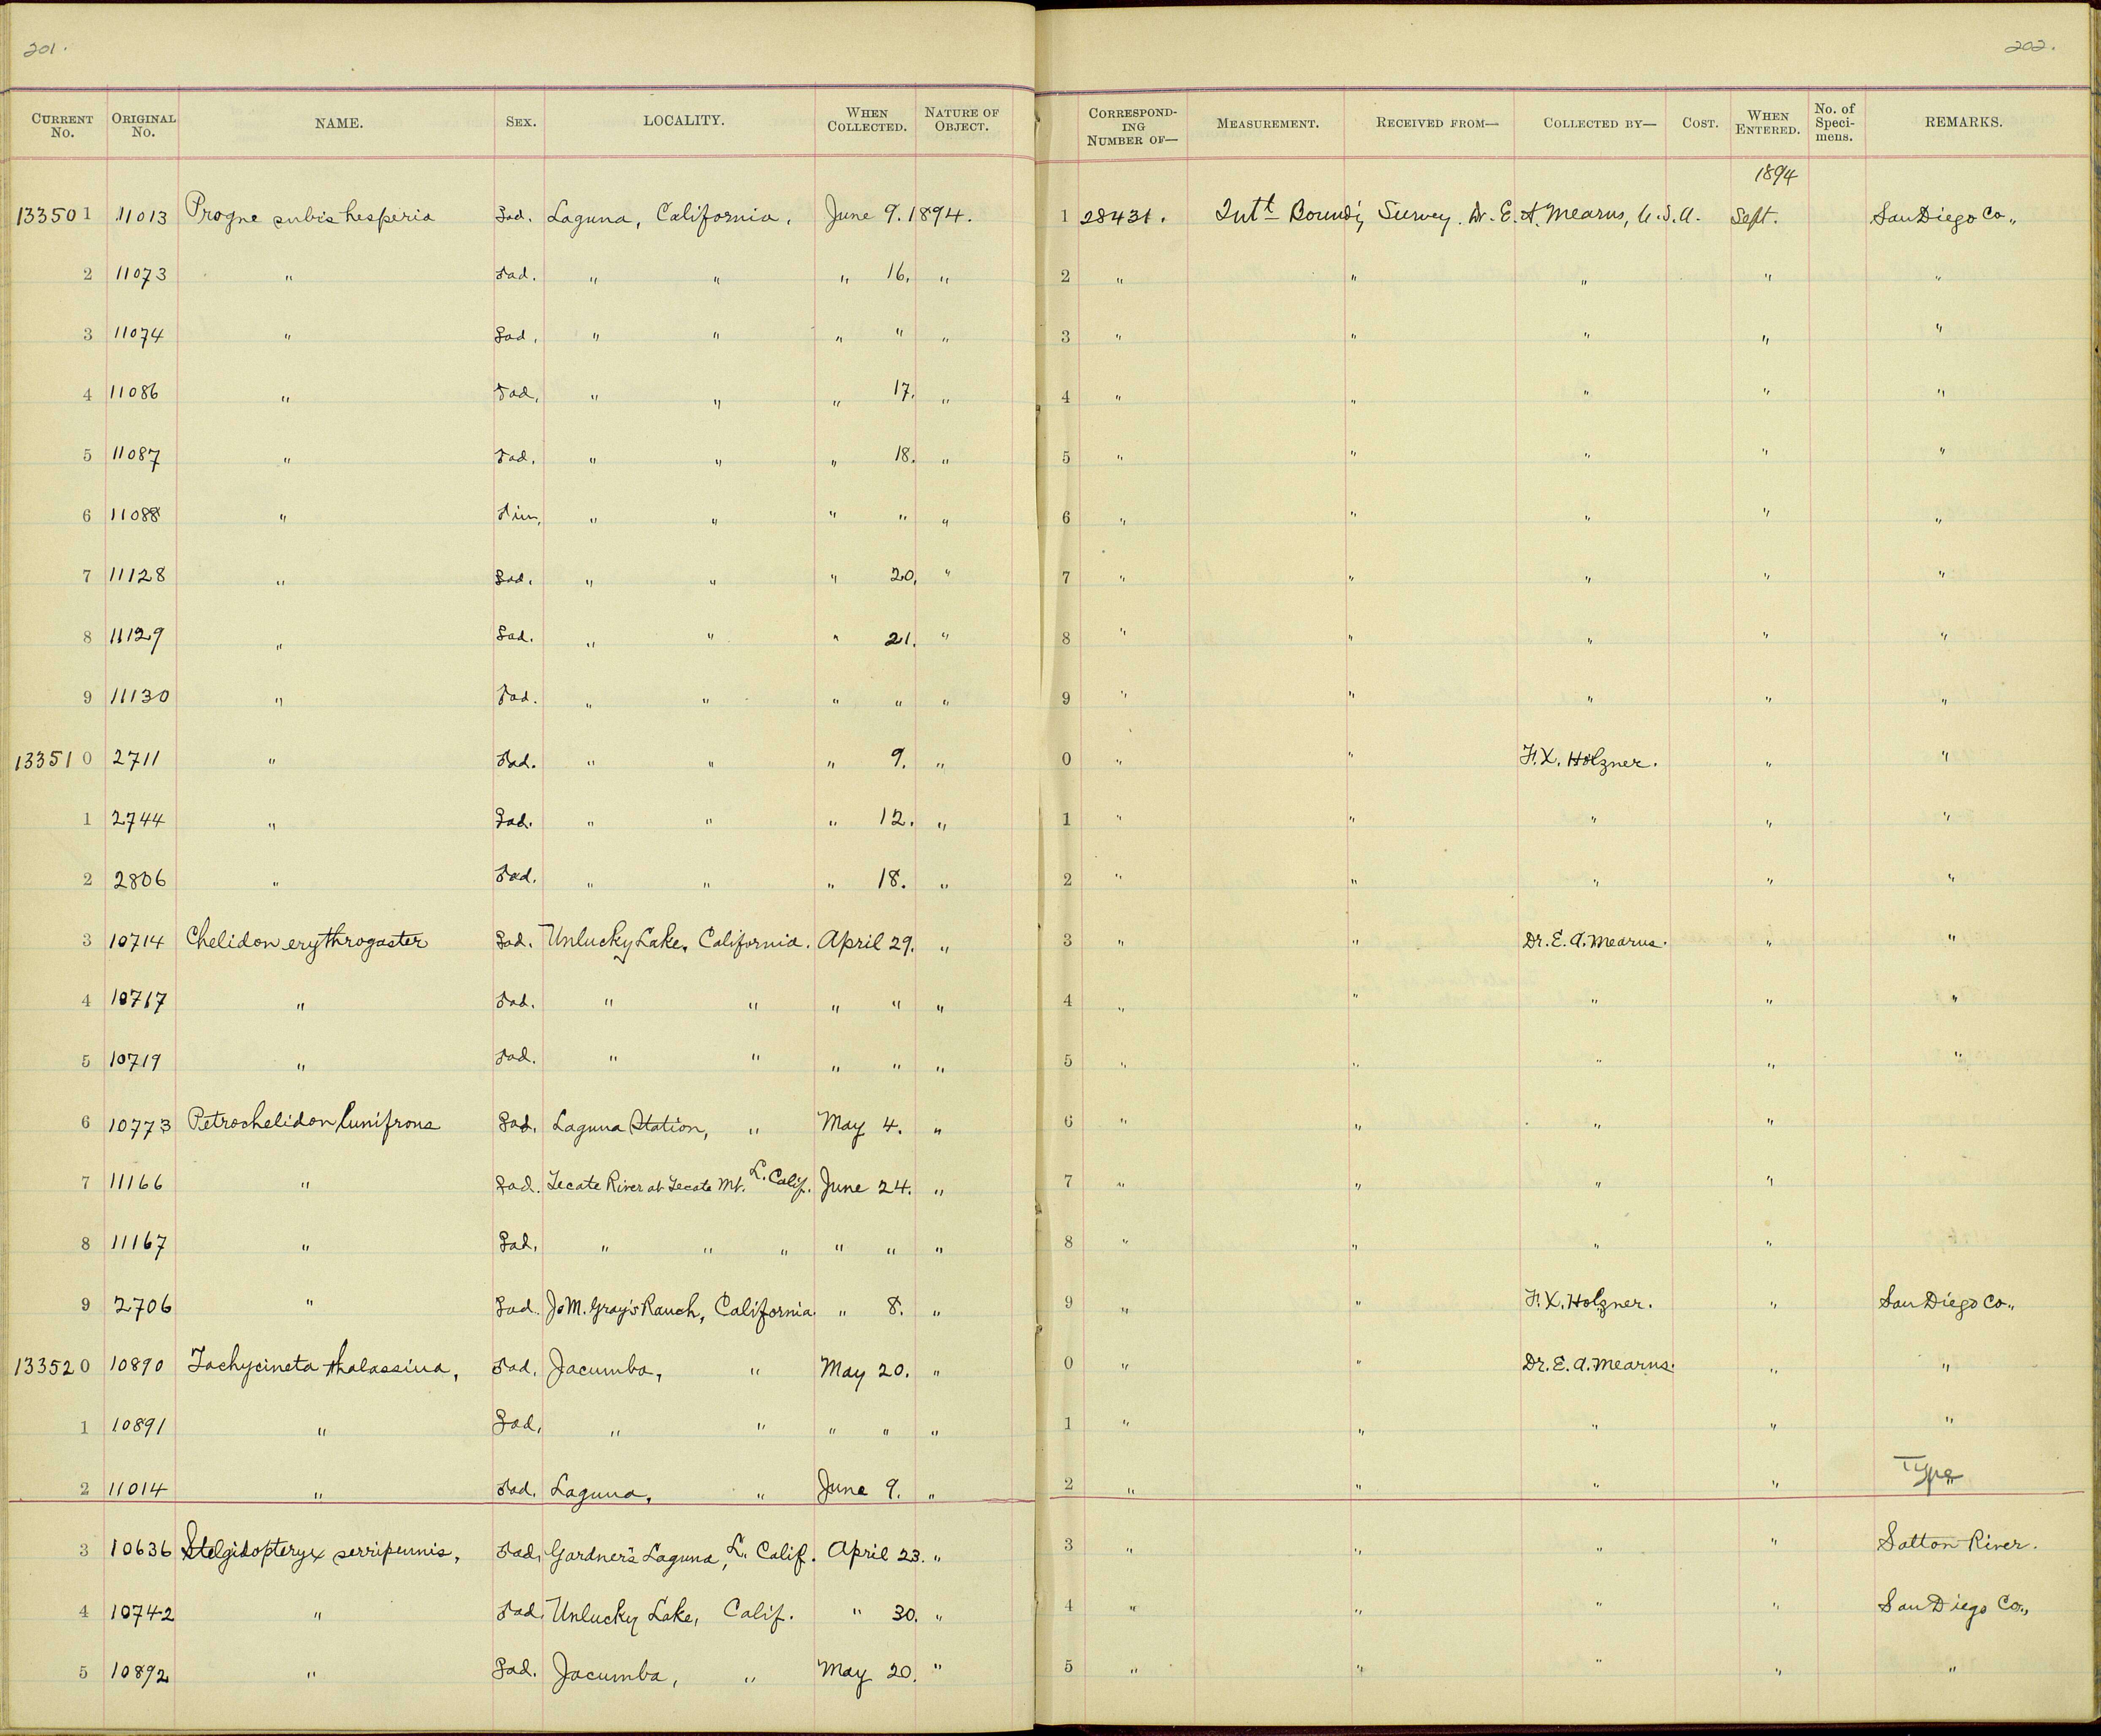 201.
202.
CURRENT No. ORIGINAL No. NAME. SEX. LOCALITY. WHEN COLLECTED. NATURE OF OBJECT. CORRESPONDING NUMBER OF— MEASUREMENT. RECEIVED FROM— COLLECTED BY— COST. WHEN ENTERED. No. of Specimens. REMARKS.
1894
133501 11013 Progne subis hesperia ♀ad. Laguna, California, June 9. 1894. 1 28431. Intl Boundy Survey. Dr. E. A. Mearns, U.S.A. Sept. San Diego Co.,
2 11073 " ♂ad. " " " 16. " 2 " " " " "
3 11074 " ♀ad. " " " " " 3 " " " " "
4 11086 " ♂ad. " " " 17. " 4 " " " " "
5 11087 " ♂ad. " " " 18. " 5 " " " " "
6 11088 " ♂im. " " " " " 6 " " " " "
7 11128 " ♀ad. " " " 20. " 7 " " " " "
8 11129 " ♀ad. " " " 21. " 8 " " " " "
9 11130 " ♂ad. " " " " " 9 " " " " "
133510 2711 " ♂ad. " " " 9. " 0 " " F. X. Holzner. " "
1 2744 " ♀ad. " " " 12. " 1 " " " " "
2 2806 " ♂ad. " " " 18. " 2 " " " " "
3 10714 Chelidon erythrogaster ♀ad. Unlucky Lake, California. April 29. " 3 " " Dr. E. A. Mearns. " "
4 10717 " ♂ad. " " " " " 4 " " " " "
5 10719 " ♂ad. " " " " " 5 " " " " "
6 10773 Petrochelidon lunifrons ♀ad. Laguna Station, " May 4. " 6 " " " "
7 11166 " ♀ad. Tecate River at Tecate Mt. L. Calif. June 24. " 7 " " " "
8 11167 " ♀ad. " " " " " " 8 " " " "
9 2706 " ♀ad. J. M. Gray's Ranch, California. " 8. " 9 " " F. X. Holzner. " San Diego Co.,
133520 10890 Tachycineta thalassina, ♂ad. Jacumba, " May 20. " 0 " " Dr. E. A. Mearns. " "
1 10891 " ♀ad. " " " " " 1 " " " " "
2 11014 " ♂ad. Laguna, " June 9. " 2 " " " " " Type
3 10636 Stelgidopteryx serripennis, ♂ad. Gardner's Laguna, L. Calif. April 23. " 3 " " " " Salton River.
4 10742 " ♂ad. Unlucky Lake, Calif. " 30. " 4 " " " " San Diego Co.,
5 10892 " ♀ad. Jacumba, " May 20. " 5 " " " " "